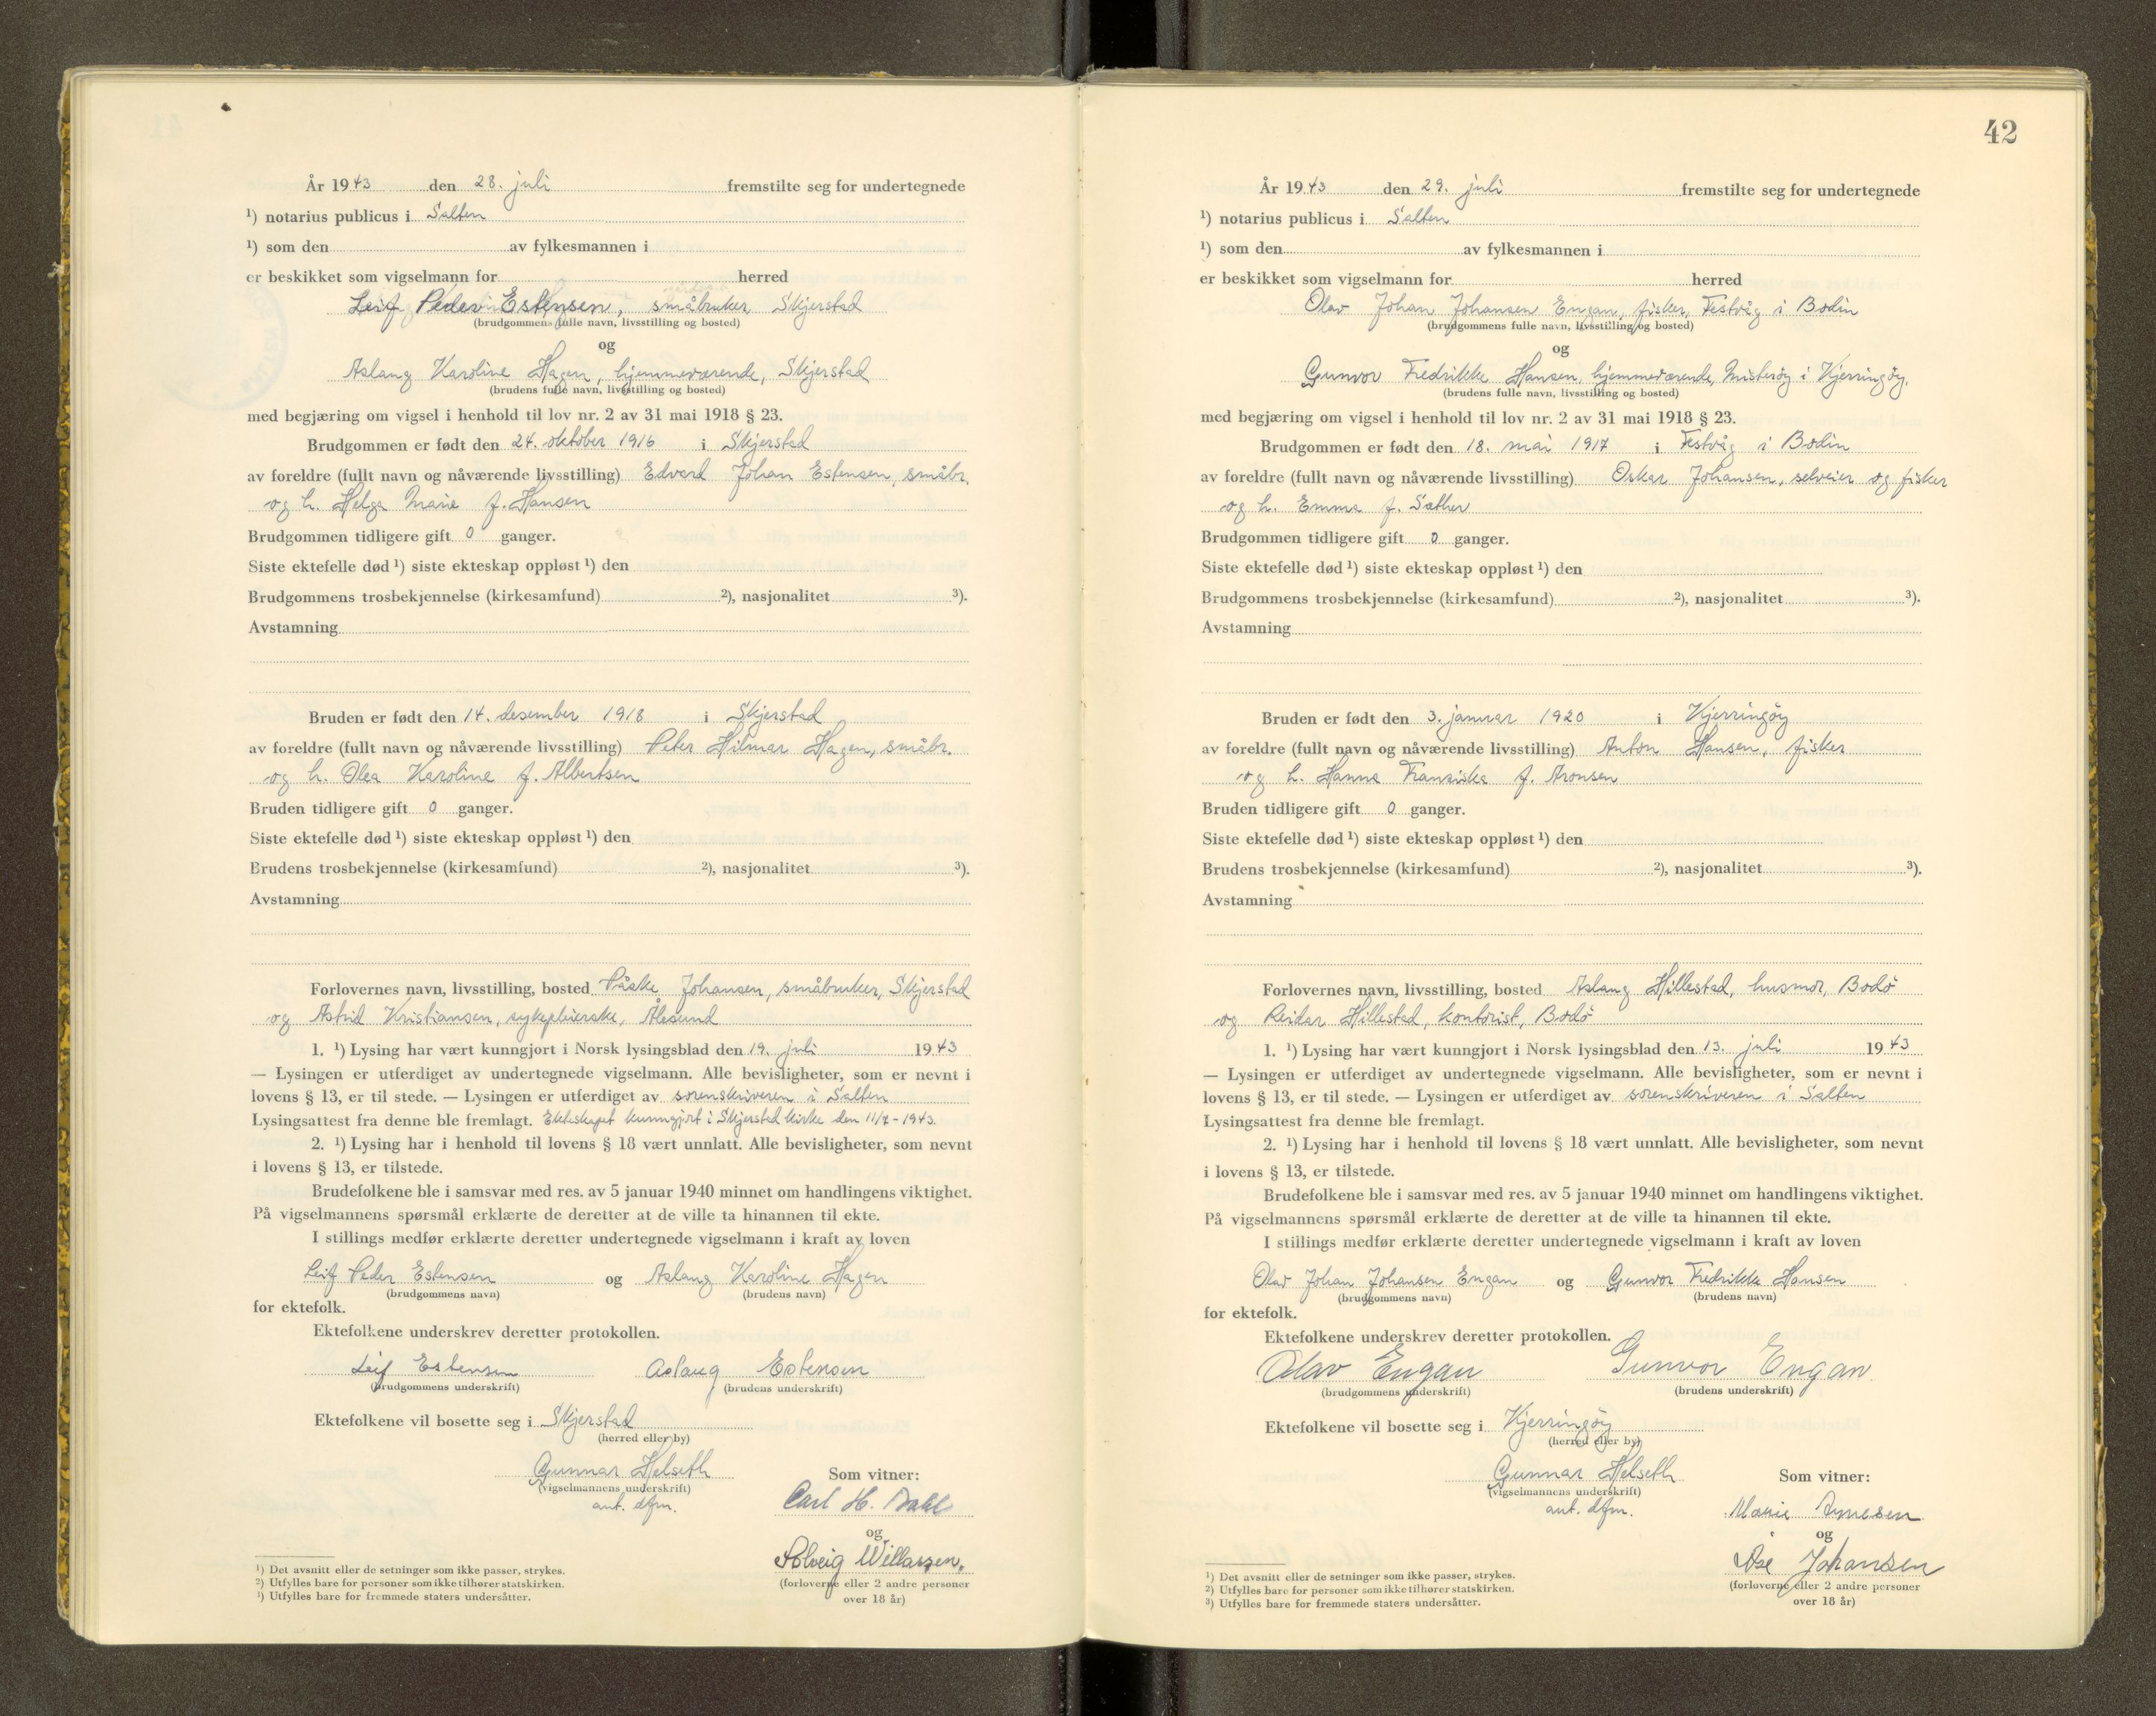 År 1943 den 28. juli fremstilte seg for undertegnede
¹) notarius publicus i Salten
¹) som den av fylkesmannen i
er beskikket som vigselmann for herred
Leif Peder Estensen, småbruker, Skjerstad
(brudgommens fulle navn, livsstilling og bosted)
og
Aslaug Karoline Hagen, hjemmeværende, Skjerstad
(brudens fulle navn, livsstilling og bosted)
med begjæring om vigsel i henhold til lov nr. 2 av 31 mai 1918 § 23.
Brudgommen er født den 24. oktober 1916 i Skjerstad
av foreldre (fullt navn og nåværende livsstilling) Edvard Johan Estensen, småbr.
og h. Helga Marie f. Hansen
Brudgommen tidligere gift 0 ganger.
Siste ektefelle død ¹) siste ekteskap oppløst ¹) den
Brudgommens trosbekjennelse (kirkesamfund) ²), nasjonalitet ³).
Avstamning
Bruden er født den 14. desember 1918 i Skjerstad
av foreldre (fullt navn og nåværende livsstilling) Peter Hilmar Hagen, småbr.
og h. Olea Karoline f. Albertsen
Bruden tidligere gift 0 ganger.
Siste ektefelle død ¹) siste ekteskap oppløst ¹) den
Brudens trosbekjennelse (kirkesamfund) ²), nasjonalitet ³).
Avstamning
Forlovernes navn, livsstilling, bosted Påske Johansen, småbruker, Skjerstad
og Astrid Kristiansen, sykepleierske, Ålesund
1. ¹) Lysing har vært kunngjort i Norsk lysingsblad den 19. juli 1943
— Lysingen er utferdiget av undertegnede vigselmann. Alle bevisligheter, som er nevnt i
lovens § 13, er til stede. — Lysingen er utferdiget av sorenskriveren i Salten
Lysingsattest fra denne ble fremlagt. Ekteskapet kunngjort i Skjerstad kirke den 11/7-1943.
2. ¹) Lysing har i henhold til lovens § 18 vært unnlatt. Alle bevisligheter, som nevnt
i lovens § 13, er tilstede.
Brudefolkene ble i samsvar med res. av 5 januar 1940 minnet om handlingens viktighet.
På vigselmannens spørsmål erklærte de deretter at de ville ta hinannen til ekte.
I stillings medfør erklærte deretter undertegnede vigselmann i kraft av loven
Leif Peder Estensen og Aslaug Karoline Hagen
(brudgommens navn) (brudens navn)
for ektefolk.
Ektefolkene underskrev deretter protokollen.
Leif Estensen Aslaug Estensen
(brudgommens underskrift) (brudens underskrift)
Ektefolkene vil bosette seg i Skjerstad
(herred eller by)
Gunnar Helseth Som vitner:
(vigselmannens underskrift)
aut. dfm.
Carl H. Dahl
og
Solveig Willassen.
(forloverne eller 2 andre personer
over 18 år)
¹) Det avsnitt eller de setninger som ikke passer, strykes.
²) Utfylles bare for personer som ikke tilhører statskirken.
³) Utfylles bare for fremmede staters undersåtter.
42
År 1943 den 29. juli fremstilte seg for undertegnede
¹) notarius publicus i Salten
¹) som den av fylkesmannen i
er beskikket som vigselmann for herred
Olav Johan Johansen Engan, fisker, Festvåg i Bodin
(brudgommens fulle navn, livsstilling og bosted)
og
Gunvor Fredrikke Hansen, hjemmeværende, Misterøy i Kjerringøy.
(brudens fulle navn, livsstilling og bosted)
med begjæring om vigsel i henhold til lov nr. 2 av 31 mai 1918 § 23.
Brudgommen er født den 18. mai 1917 i Festvåg i Bodin
av foreldre (fullt navn og nåværende livsstilling) Oskar Johansen, selveier og fisker
og h. Emma f. Sæther
Brudgommen tidligere gift 0 ganger.
Siste ektefelle død ¹) siste ekteskap oppløst ¹) den
Brudgommens trosbekjennelse (kirkesamfund) ²), nasjonalitet ³).
Avstamning
Bruden er født den 3. januar 1920 i Kjerringøy
av foreldre (fullt navn og nåværende livsstilling) Anton Hansen, fisker
og h. Hanna Fransiska f. Aronsen
Bruden tidligere gift 0 ganger.
Siste ektefelle død ¹) siste ekteskap oppløst ¹) den
Brudens trosbekjennelse (kirkesamfund) ²), nasjonalitet ³).
Avstamning
Forlovernes navn, livsstilling, bosted Aslaug Hillestad, husmor, Bodø
og Reidar Hillestad, kontorist, Bodø
1. ¹) Lysing har vært kunngjort i Norsk lysingsblad den 13. juli 1943
— Lysingen er utferdiget av undertegnede vigselmann. Alle bevisligheter, som er nevnt i
lovens § 13, er til stede. — Lysingen er utferdiget av sorenskriveren i Salten
Lysingsattest fra denne ble fremlagt.
2. ¹) Lysing har i henhold til lovens § 18 vært unnlatt. Alle bevisligheter, som nevnt
i lovens § 13, er tilstede.
Brudefolkene ble i samsvar med res. av 5 januar 1940 minnet om handlingens viktighet.
På vigselmannens spørsmål erklærte de deretter at de ville ta hinannen til ekte.
I stillings medfør erklærte deretter undertegnede vigselmann i kraft av loven
Olav Johan Johansen Engan og Gunvor Fredrikke Hansen
(brudgommens navn) (brudens navn)
for ektefolk.
Ektefolkene underskrev deretter protokollen.
Olav Engan Gunvor Engan
(brudgommens underskrift) (brudens underskrift)
Ektefolkene vil bosette seg i Kjerringøy
(herred eller by)
Gunnar Helseth Som vitner:
(vigselmannens underskrift)
aut. dfm.
Marie Arnesen
og
Åse Johansen
(forloverne eller 2 andre personer
over 18 år)
¹) Det avsnitt eller de setninger som ikke passer, strykes.
²) Utfylles bare for personer som ikke tilhører statskirken.
³) Utfylles bare for fremmede staters undersåtter.